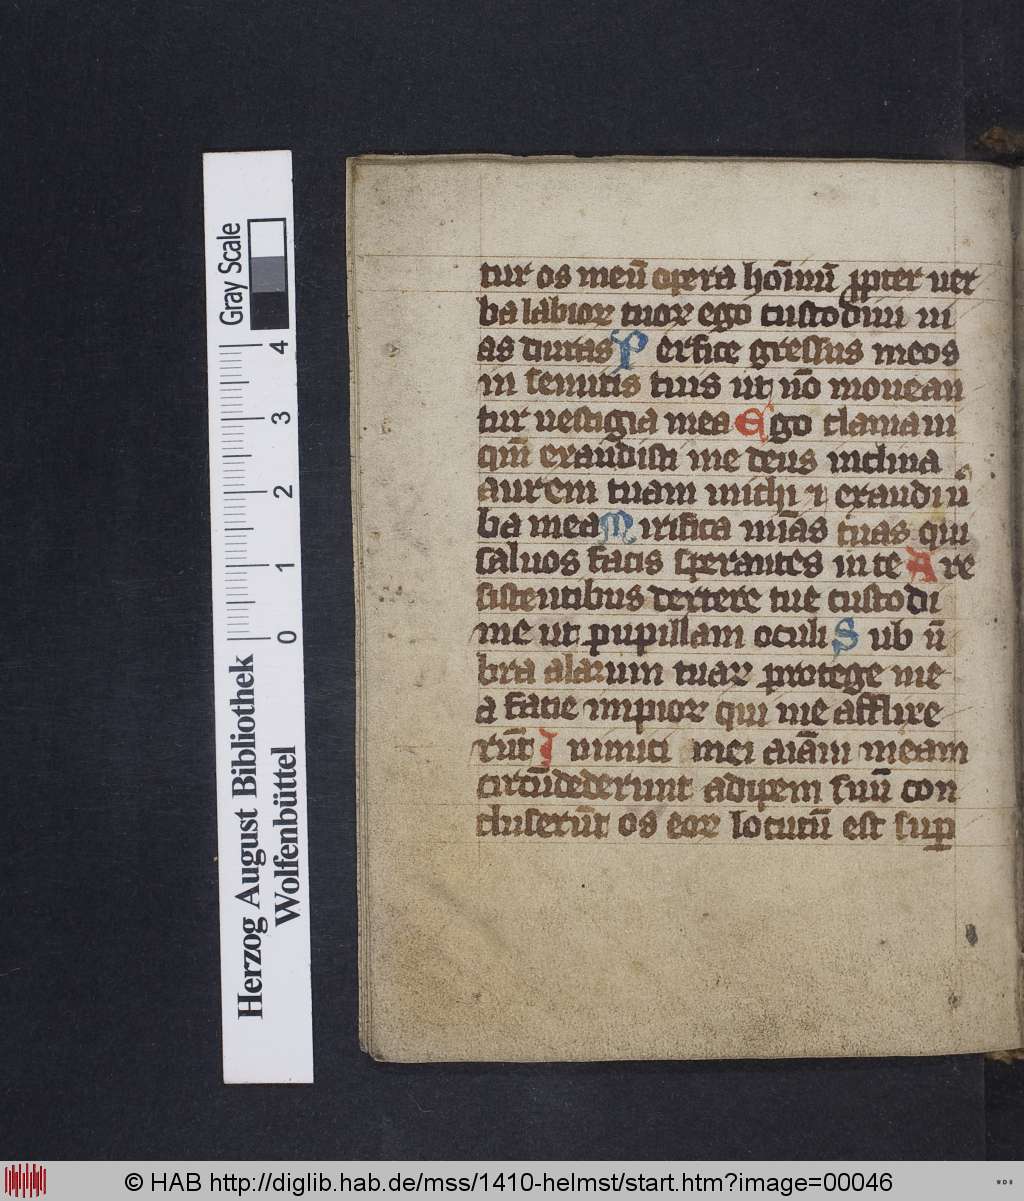 Gray Scale
4
3
2
1
0
Herzog August Bibliothek
Wolfenbüttel
tur os meū opera hoīnū ꝓpter uer
ba labioꝝ tuoꝝ ego custodiui ui
as duras Perfice gressus meos
in semitis tuis ut nō mouean
tur uestigia mea Ego clamaui
qm̄ exaudisti me deus inclina
aurem tuam michi ⁊ exaudi ū
ba mea Mirifica mīas tuas qui
saluos facis sperantes in te A re
sistentibus dextere tue custodi
me ut pupillam oculi Sub ū
bra alarum tuaꝝ protege me
a facie impioꝝ qui me afflixe
rūt Inimici mei aīam meam
circūdederunt adipem suū con
cluserūt os eoꝝ locutū est suꝑ
© HAB http://diglib.hab.de/mss/1410-helmst/start.htm?image=00046